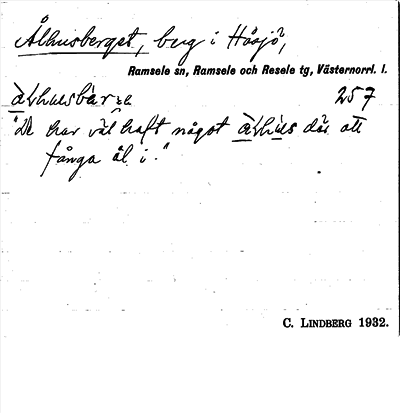 Ålhusberget, berg i Håsjö,
Ramsele sn, Ramsele och Resele tg, Västernorrl. l.
257
"De har väl haft något ålhus där att
fånga ål i."
C. LINDBERG 1932.